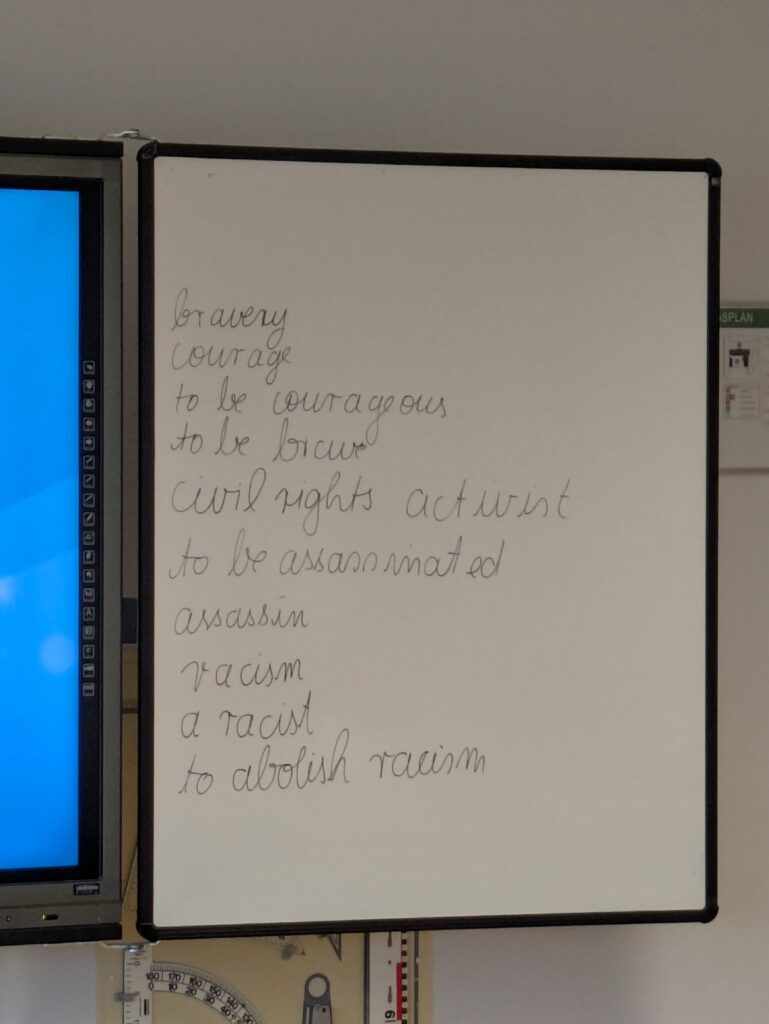 bravery
courage
to be courageous
to be brave
civil rights activist
to be assassinated
assassin
racism
a racist
to abolish racism
SPLAN
180 170 160 150
0 10 20 30 40